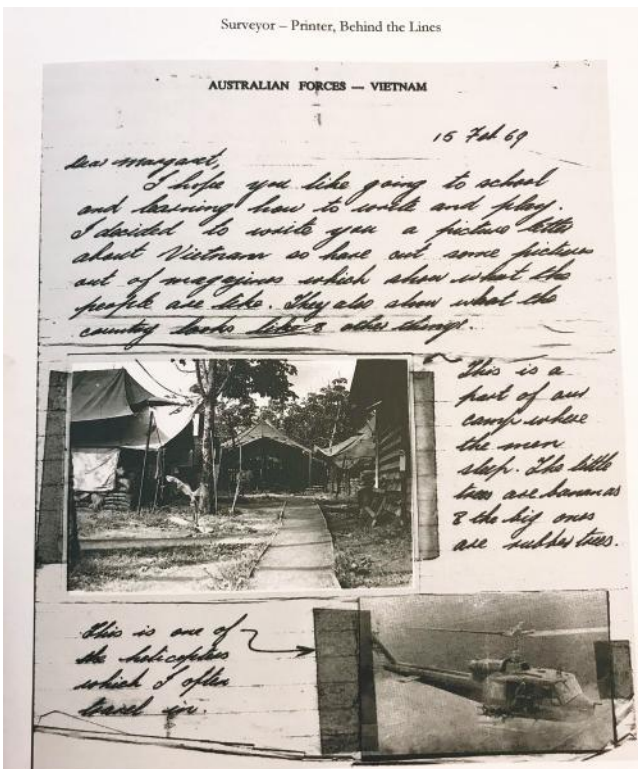 Surveyor – Printer, Behind the Lines
AUSTRALIAN FORCES — VIETNAM
15 Feb 69
Dear Margaret,
I hope you like going to school
and learning how to write and play.
I decided to write you a picture letter
about Vietnam so have cut some pictures
out of magazines which show what the
people are like. They also show what the
country looks like & other things.
This is a
part of our
camp where
the men
sleep. The little
trees are bananas
& the big ones
are rubber trees.
This is one of
the helicopters
which I often
travel in.